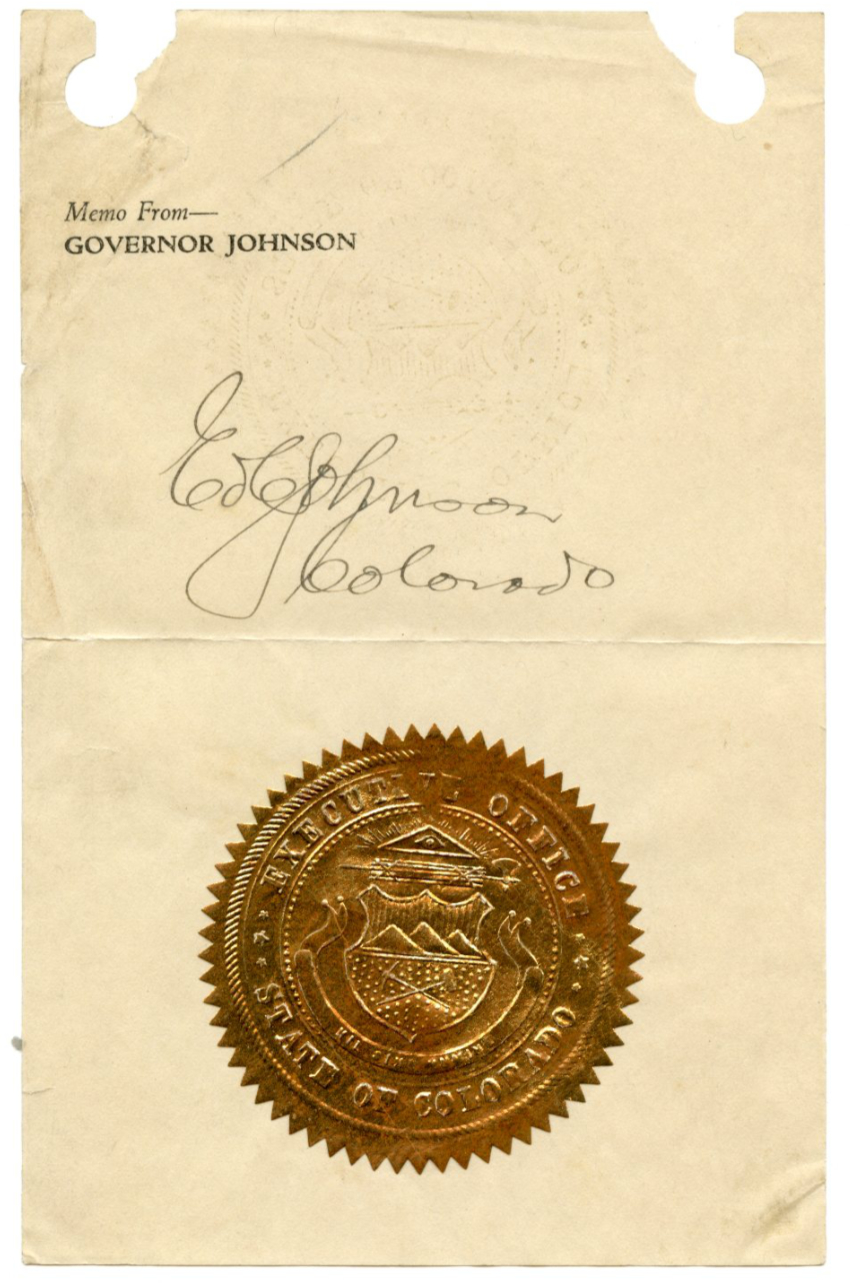 Memo From—
GOVERNOR JOHNSON
Ed C Johnson
Colorado
EXECUTIVE OFFICE
STATE OF COLORADO